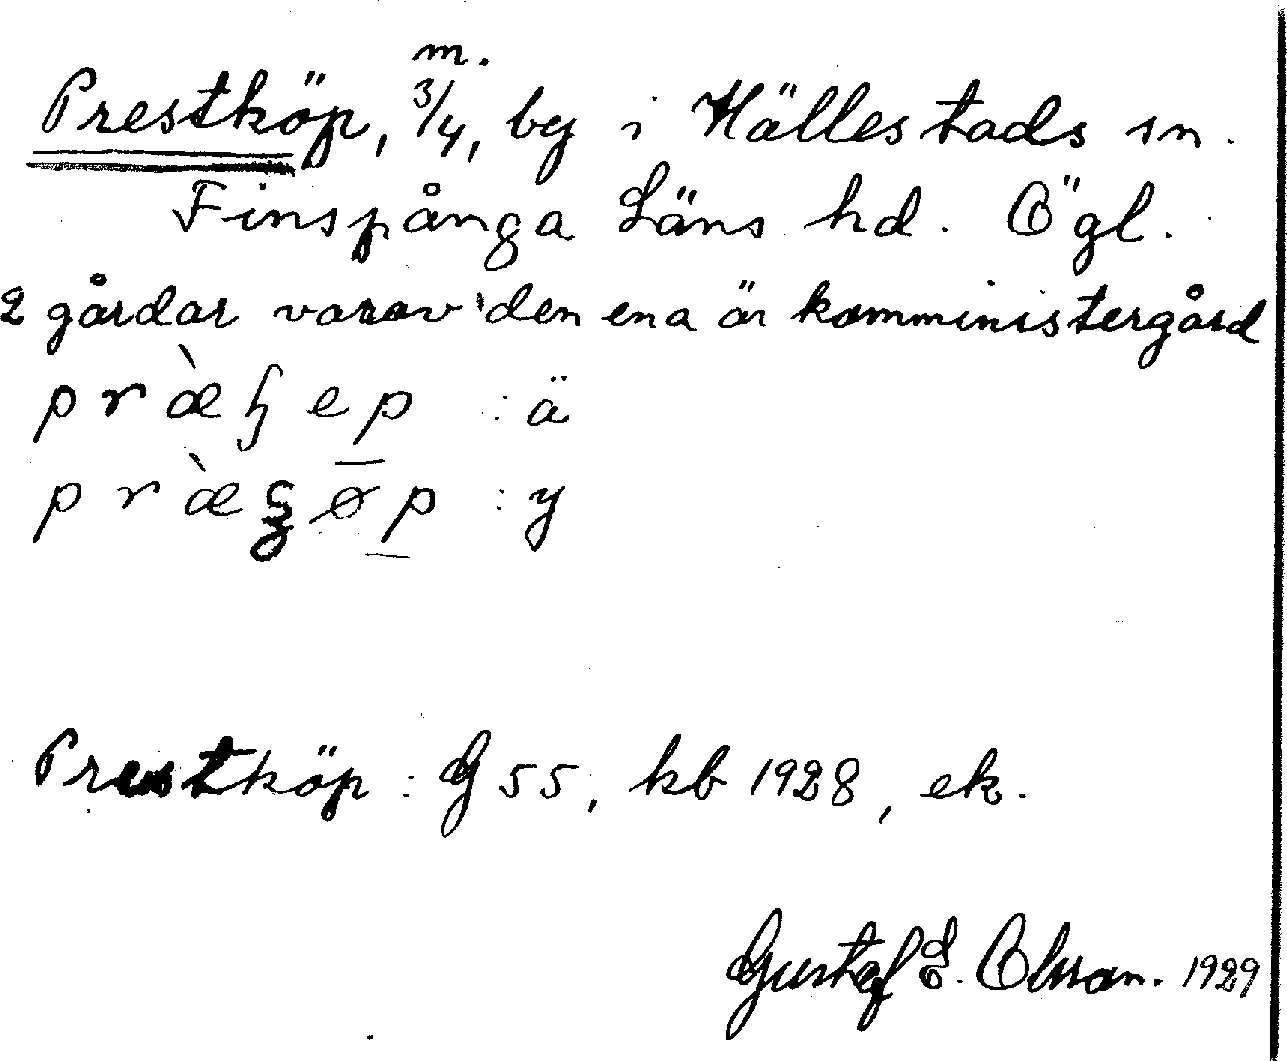 Prestköp, 3/4 m., by i Hällestads sn.
Finspånga Läns hd. Ögl.
2 gårdar varav den ena är komministergård
præ̀ɧep : ä
præ̀ʂøp : y
Prestköp : G 55, kb 1928, ek.
Gustaf E. Olsson. 1929